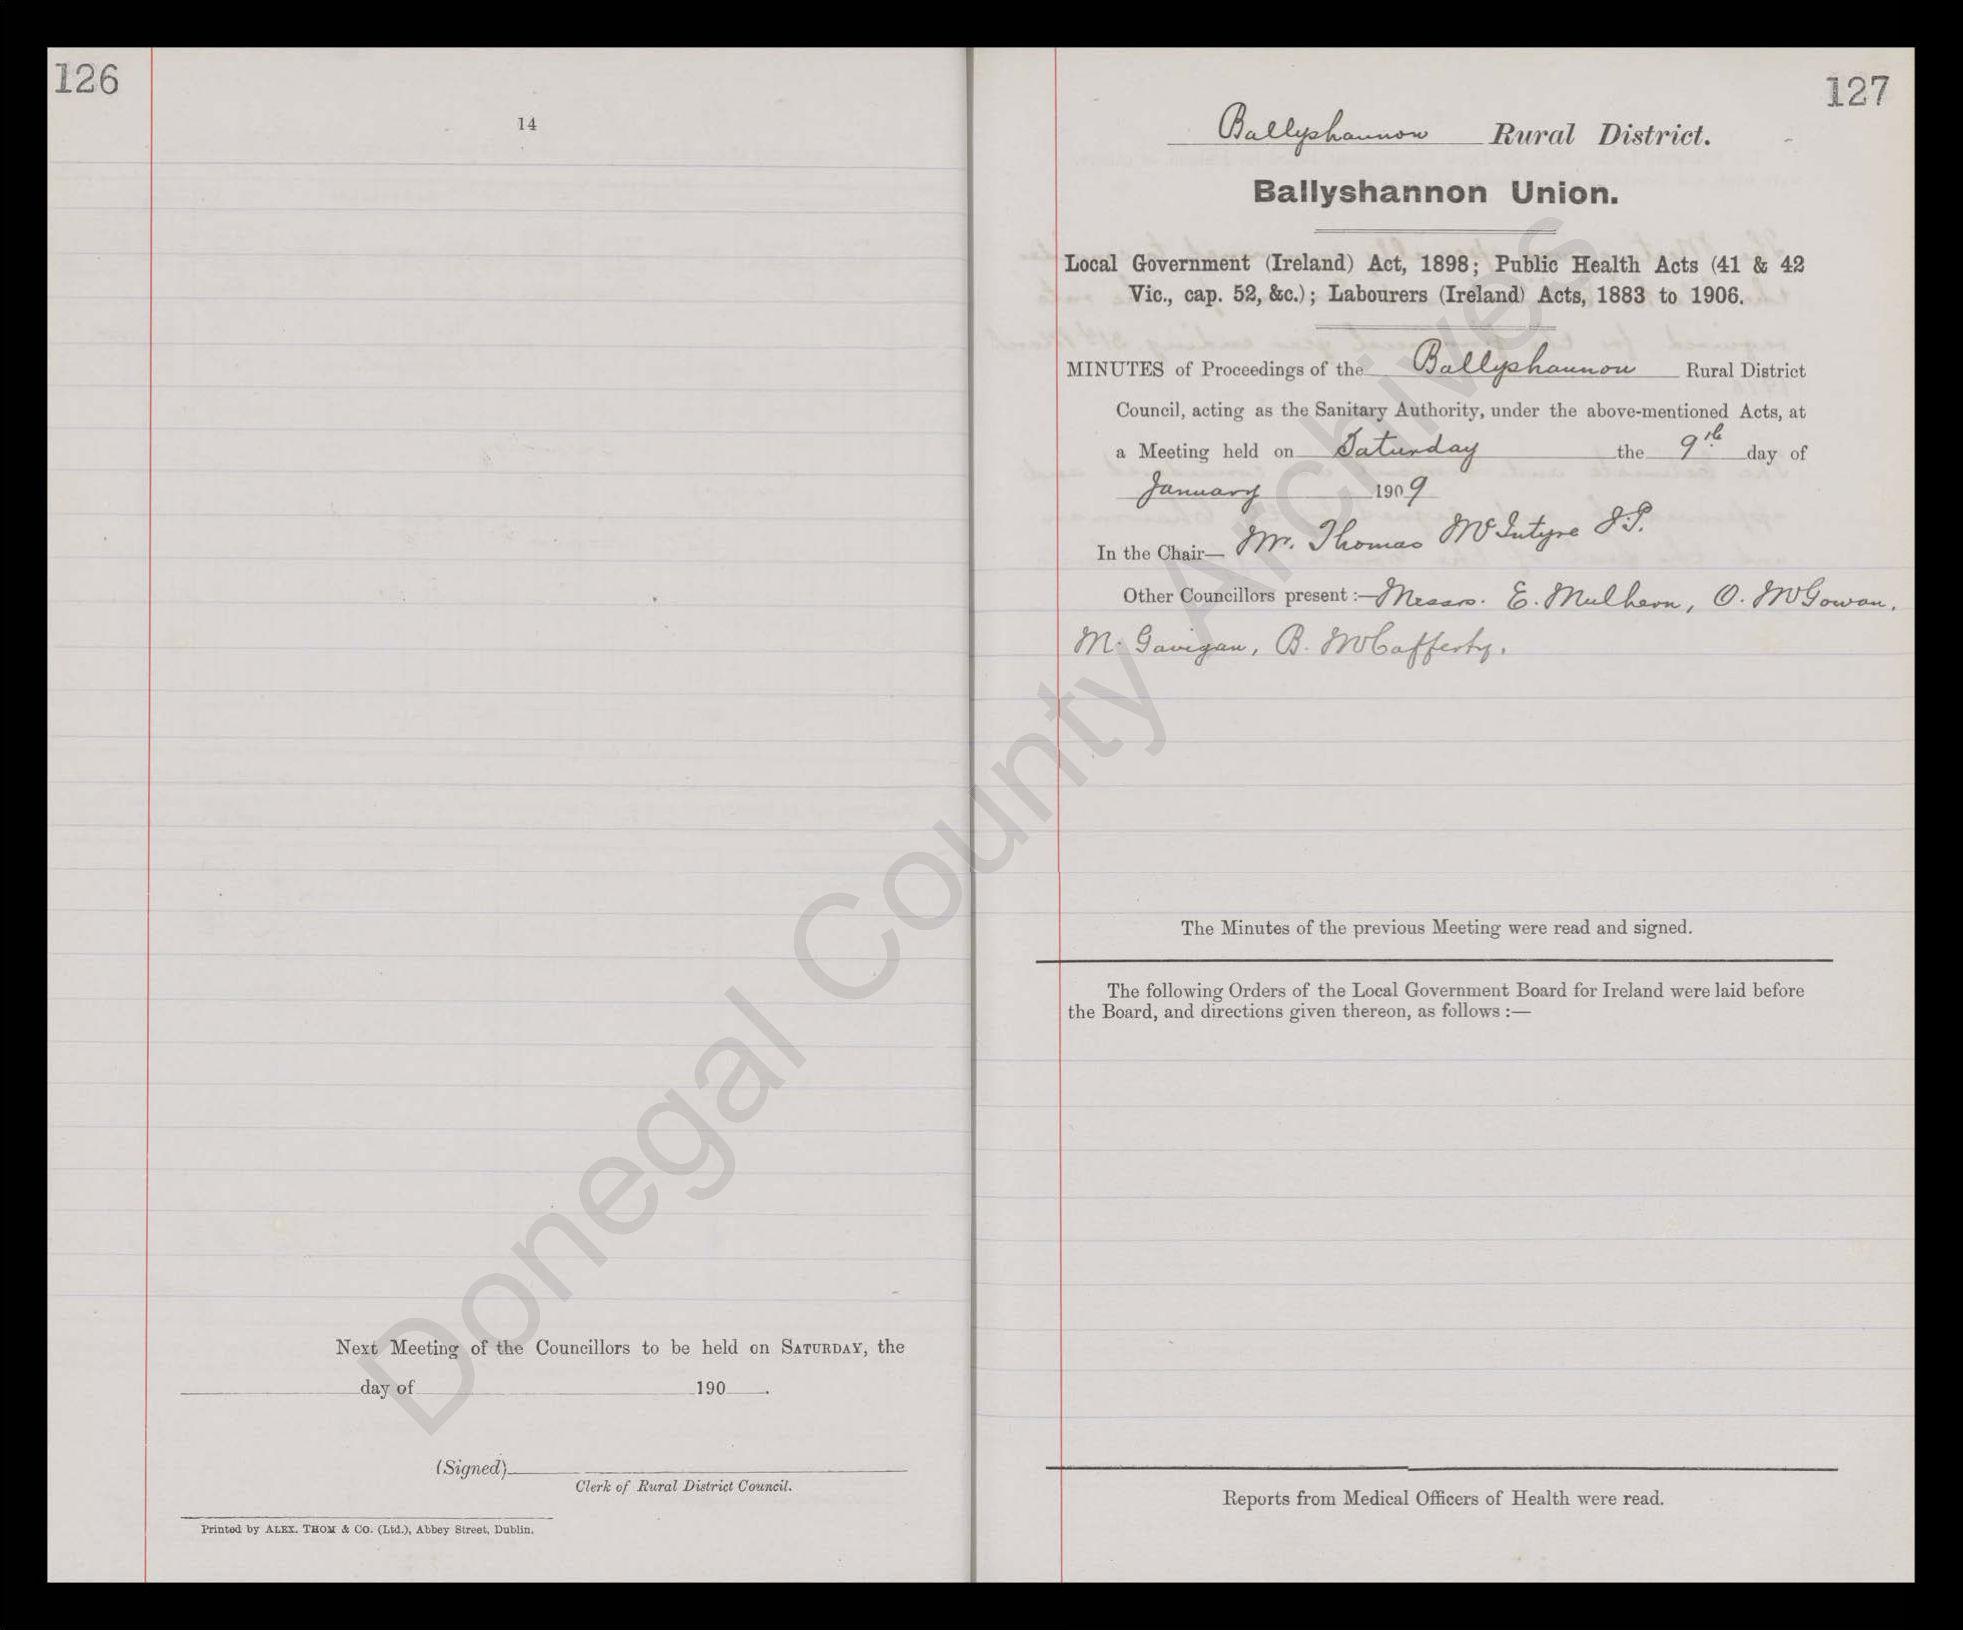 126
14
Next Meeting of the Councillors to be held on SATURDAY, the
day of 190 .
(Signed)
Clerk of Rural District Council.
Printed by ALEX. THOM & CO. (Ltd.), Abbey Street, Dublin.
127
Ballyshannon Rural District.
Ballyshannon Union.
Local Government (Ireland) Act, 1898; Public Health Acts (41 & 42
Vic., cap. 52, &c.); Labourers (Ireland) Acts, 1883 to 1906.
MINUTES of Proceedings of the Ballyshannon Rural District
Council, acting as the Sanitary Authority, under the above-mentioned Acts, at
a Meeting held on Saturday the 9th day of
January 1909
In the Chair— Mr. Thomas McIntyre J.P.
Other Councillors present :— Messrs. E. Mulhern, O. McGowan,
M. Gavigan, B. McCafferty.
The Minutes of the previous Meeting were read and signed.
The following Orders of the Local Government Board for Ireland were laid before
the Board, and directions given thereon, as follows :—
Reports from Medical Officers of Health were read.
Donegal County Archives